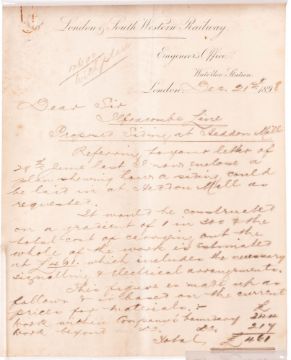 London & South Western Railway.
Engineer's Office
Waterloo Station
London, Dec. 21st 1898
Dear Sir
Ilfracombe Line
Proposed Siding at Heddon Mill
Referring to your letter of
29th June last I now enclose a
plan showing how a siding could
be laid in at Heddon Mill as
requested.
It would be constructed
on a gradient of 1 in
total cost of carrying out the
whole of the work is estimated
at £461. which includes the necessary
signalling & electrical arrangements.
This figure is made up as
follows & is based on the current
prices for materials:-
£
Work within Company's boundary 244
Work beyond do. do. 217
Total £461